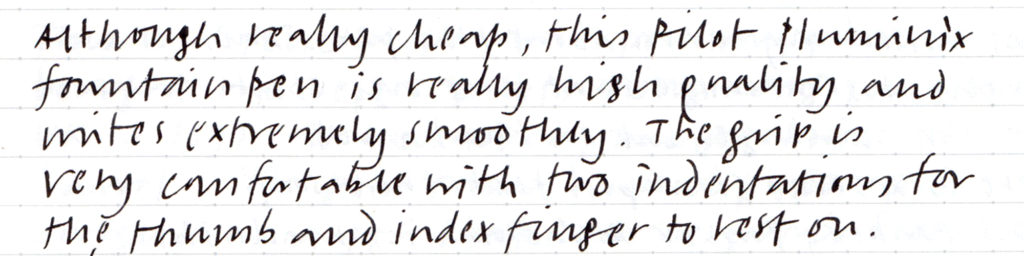 Although really cheap, this Pilot Pluminix
fountain pen is really high quality and
writes extremely smoothly. The grip is
very comfortable with two indentations for
the thumb and index finger to rest on.